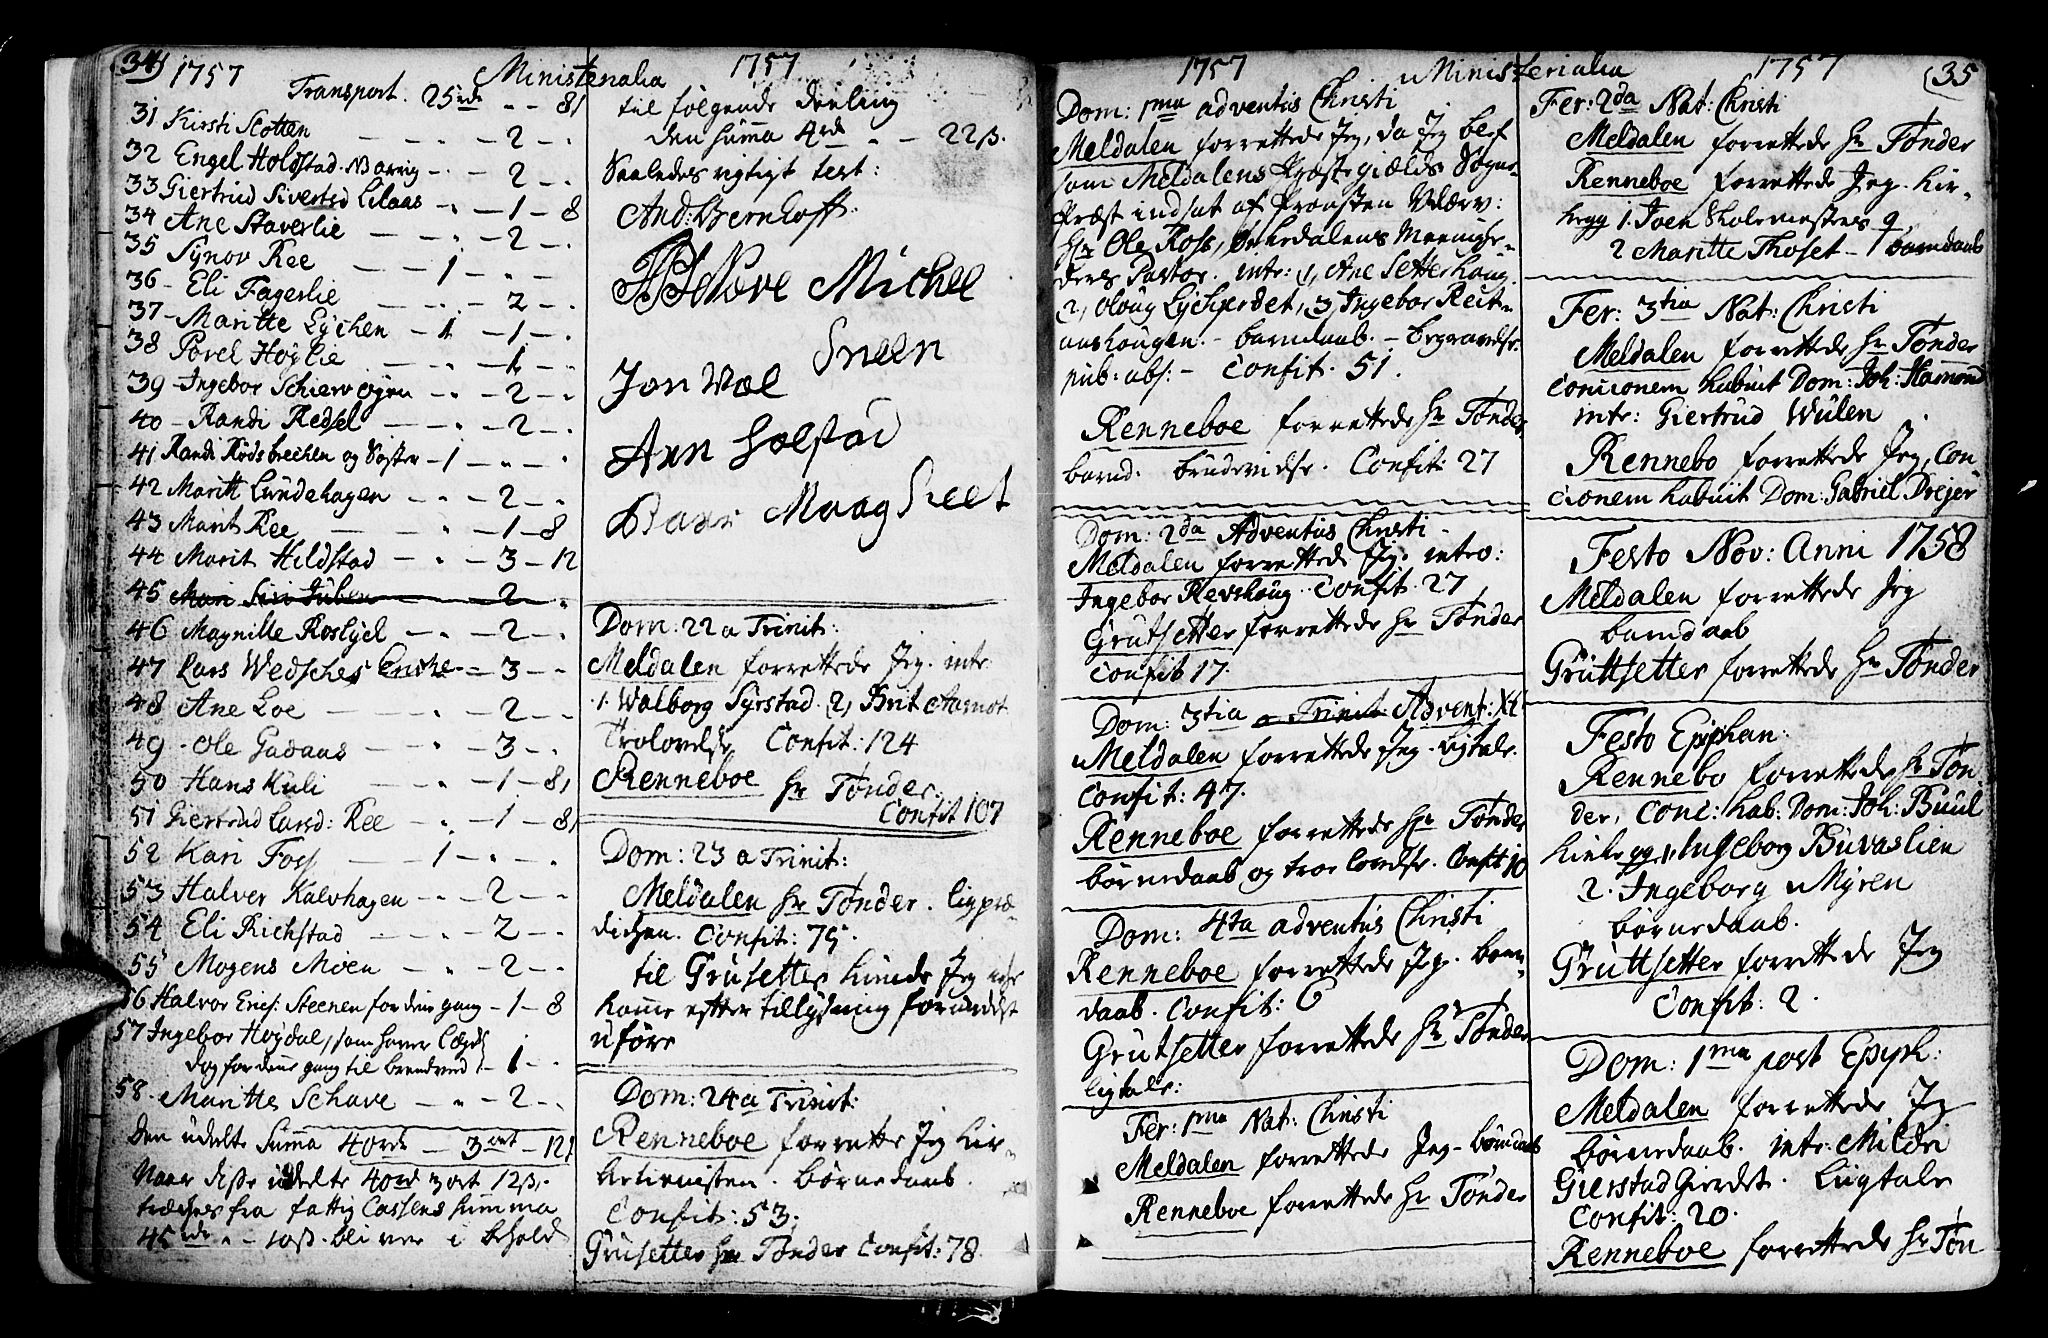 34) 1757 Ministerialia 1757
Transport. 25 rdr - - 8 ß
31 Kirsti Slotten - - 2 - -
32 Engel Holdstad - - 2 - -
33 Giertrud Sivertsd Lilaas - - 1 - 8
34 Ane Staverlie - - 2 - -
35 Synov Ree - 1 - - -
36 - Eli Fagerlie - - 2 - -
37 - Maritte Lychen - - 1 - -
38 Povel Høylie - - 1 - -
39 - Ingebor Schiervøgen - - 2 - -
40 - Randi Redsel - - 2 - -
41 Randi Rødsbrechen og Søster - 1 - - -
42 Maritt Lundehagen - - 2 - -
43 Marit Ree - - 1 - 8
44 Marit Hildstad - - 3 - 12
45 Mari Siri Juben - - 2 - -
46 Magnille Roslyd - - 2 - -
47 Lars Wedsches Enche - - 3 - -
48 Ane Loe - - 2 - -
49 - Ole Gadaas - - 3 - -
50 Hans Kuli - - 1 - 8
51 Giertrud Larsd: Ree - - 1 - 8
52 Kari Foss - 1 - - -
53 Halver Kalvhagen - - 2 - -
54 Eli Richstad - - 2 - -
55 Mogens Moen - - 2 - -
56 Halvor Erics: Steenen for den gang - 1 - 8
57 Ingebor Høgdal, som haver Lægd
dog for denne gang til brendved - 1 - -
58. Maritte Schave - - 2 - -
Den udelte Summa 40 rdr - 3 ort - 12 ß
Naar disse uddelte 40 rd 3 ort 12 ß.
træches fra fattig Cassens summa
45 rdr - - 10 ß. bliver i behold
til følgende deeling
den summa 4 rd - - 22 ß.
Saaledes rigtigt test:
And: Bernhoft.
Michel
Sneen
Jon Wæl
Arn Holstad
Maagereet
Dom: 22 a Trinit:
Meldalen forrettede Jeg. intr
1. Walborg Syrstad. 2, Brit Aamot
Trolovelse Confit: 124
Renneboe Hr Tønder.
Confit 107
Dom: 23 a Trinit:
Meldalen Hr Tønder. Ligpræ-
dichen. Confit: 75.
til Grusetter kunde Jeg iche
komme efter tillysning formedelst
uføre
Dom: 24 a Trinit:
Renneboe forrette Jeg kir-
. børnedaab.
Confit: 53.
Grusetter Hr Tønder Confit: 78.
1757 Ministerialia 1757 (35
Dom: 1ma adventus Christi
Meldalen forrettede Jeg, da Jeg blef
som Meldalens Præstegields Sogne-
Præst indsat af Prousten Velærv:
Hr Ole Ross, Orkedalens Meenighe-
ders Pastor. intr: 1, Ane Setterhoug
2, Oloug Lychiordet, 3, Ingebor Reit-
aashougen - barndaab. - begravelse.
pub: abs: - Confit. 51.
Renneboe forrettede Hr Tønder
barnd. brudevielse. Confit: 27
Dom: 2da Adventus Christi -
Meldalen forrettede Jeg. intro:
Ingebor Revshoug. Confit: 27
Grutsetter forrettede Hr Tønder
Confit 17.
Dom: 3tia a Trinit Advent: Xti
Meldalen forrettede Jeg. ligtale.
Confit: 47.
Renneboe forrettede Hr Tønder
børnedaab og trolovelse. Confit 10
Dom: 4ta adventus Christi
Renneboe forrettede Jeg. barn-
daab. Confit: 6
Grutsetter forrettede Hr Tønder
ligtale:
Fer: 1ma Nat: Christi
Meldalen forrettede Jeg - børnedaab
Renneboe forrettede Hr Tønder
Fer: 2da Nat: Christi
Meldalen forrettede Hr Tønder
Renneboe forrettede Jeg. kir-
kegg 1. Joen Skolemesters q
2 Maritte Thoset - 1 barndaab
Fer: 3tia Nat: Christi
Meldalen forrettede Hr Tønder
concionem habuit Dom: Joh: Hamond
intr: Giertrud Wulen
Rennebo forrettede Jeg, con-
cionem habuit Dom: Gabriel Drejer
Festo Nov: Anni 1758
Meldalen forrettede Jeg
barndaab
Gruttsetter forrettede Hr Tønder
Festo Epiphan:
Rennebo forrettede Hr Tøn
der, conc: hab: Dom: Joh: Buul
kirkegg 1, Ingeborg Buvaslien
2. Ingeborg Myren
børnedaab.
Gruttsetter forrettede Jeg
Confit: 2.
Dom: 1ma post Epiph:
Meldalen forrettede Jeg
børnedaab. intr: Mildri
Gierstad Gierdet. Ligtale
Confit: 20.
Renneboe forrettede Hr Tøn